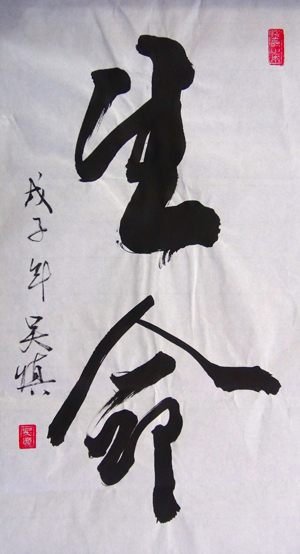 生命
戊子年 吴慎